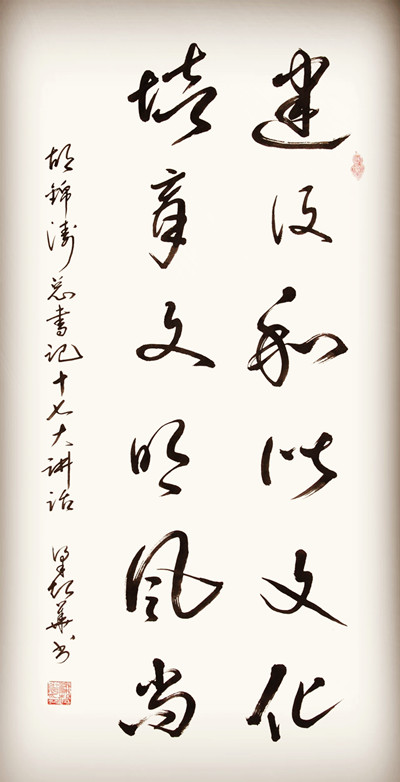 建设和谐文化
培育文明风尚
胡锦涛总書记十七大讲话
華书